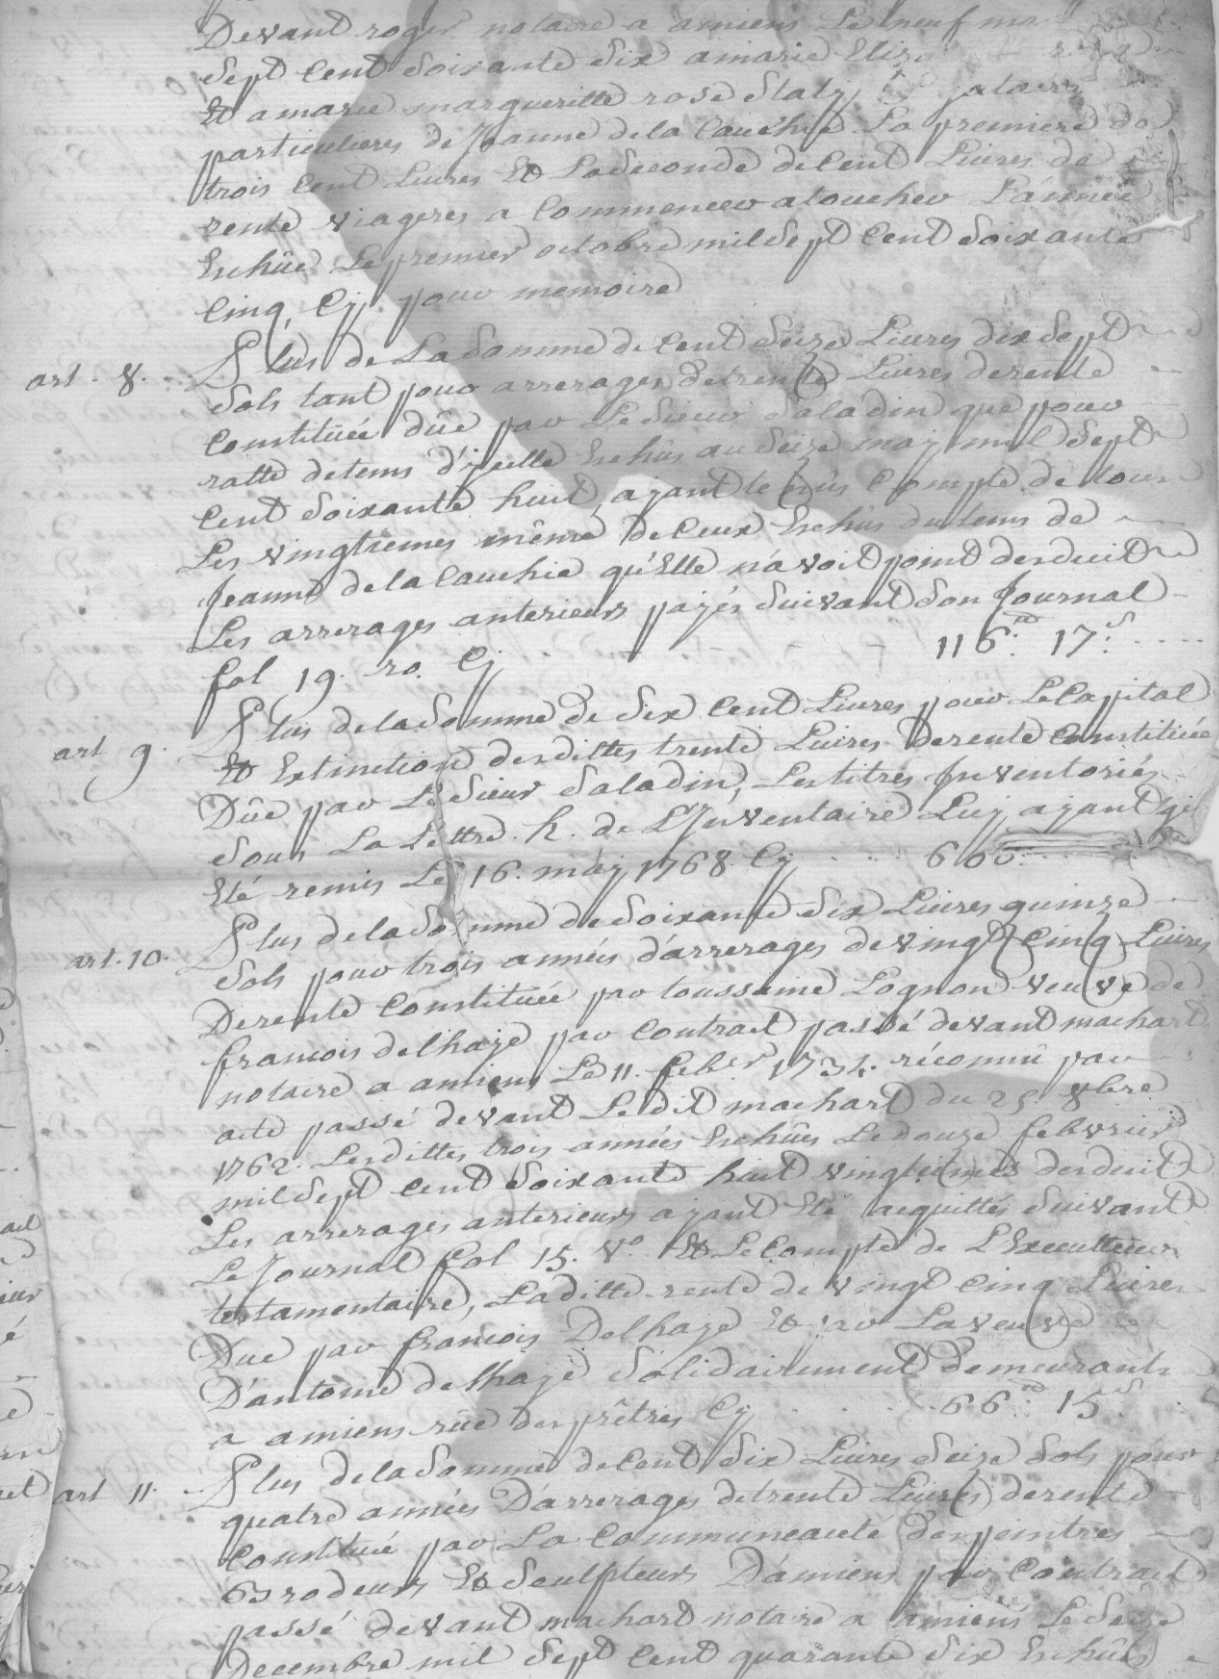 Devant roger notaire a amiens Le neuf
Sept Cent Soixante Six a marie Eliz
Et a marie margueritte rose Stalij
particulieres de Jeanne de la Cauchie La premiere de
trois Cent Livres Et La Seconde de Cent Livres de
rente viageres a Commencer a toucher L'année
Echüe Le premier octobre mil Sept Cent Soixante
Cinq, Cy. pour memoire
art. 8. Plus de La Somme de Cent Seize Livres dix Sept
Sols tant pour arrerages de trente Livres de rente
Constituée düe par Le Sieur Saladin que pour
ratte de tems d'ycelle Echus au Seize may mil Sept
Cent Soixante huit, ayant te Compte de tous
Les vingtiemes même de Ceux Echus du tems de
Jeanne de la Cauchie qu'Elle n'avoit point desduit
Les arrerages anterieurs payés Suivant Son Journal
fol 19. ro. Cy 116.# 17.s
art 9. Plus de la Somme de Six Cent Livres pour Le Capital
Et Extinction desdittes trente Livres De rente Constituée
Düe par Le Sieur Saladin, Les titres Inventoriés
Sous La Lettre h. de L'Inventaire Luy ayant
Eté remis Le 16. may 1768 Cy 600.
art. 10. Plus de la Somme de Soixante Six Livres quinze
Sols pour trois années d'arrerages de vingt Cinq Livres
De rente Constituée par toussaine Lognon veuve de
francois delhaye par Contract passé devant machart
notaire a amiens Le 11. feber 1734. réconnu par
acte passé devant Ledit machart du 25 8bre
1762. Lesdittes trois années Echües Le douze febvrier
mil Sept Cent Soixante huit vingtiemes desduit
Les arrerages anterieurs ayant Eté acquittés Suivant
Le Journal fol 15. vo. Et Le Compte de L'Executteur
testamentaire, Laditte rente de vingt Cinq Livres
Due par francois Delhaye Et par La veuve
D'antoine delhaye Solidairement Demeurants
a amiens rüe des prêtres Cy 66.# 15.s
art 11. Plus de la Somme de Cent Six Livres Seize Sols pour
quatre années D'arrerages de trente Livres de rente
Constitué par La Communeauté des peintres
Brodeurs Et Sculpteurs D'amiens par Contract
passé devant machart notaire a amiens Le Seize
Decembre mil Sept Cent quarante Six Echües